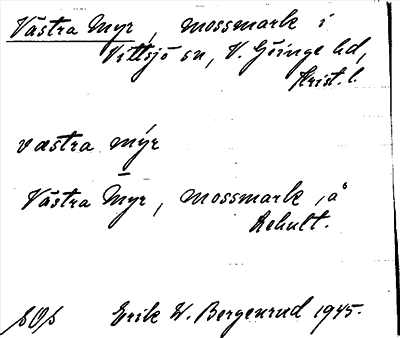 Västra Myr, mossmark i
Vittsjö sn, V. Göinge hd,
Krist. l.
vastra mýr
Västra Myr, mossmark, å
Rehult.
SOS Erik W. Bergenrud 1945.